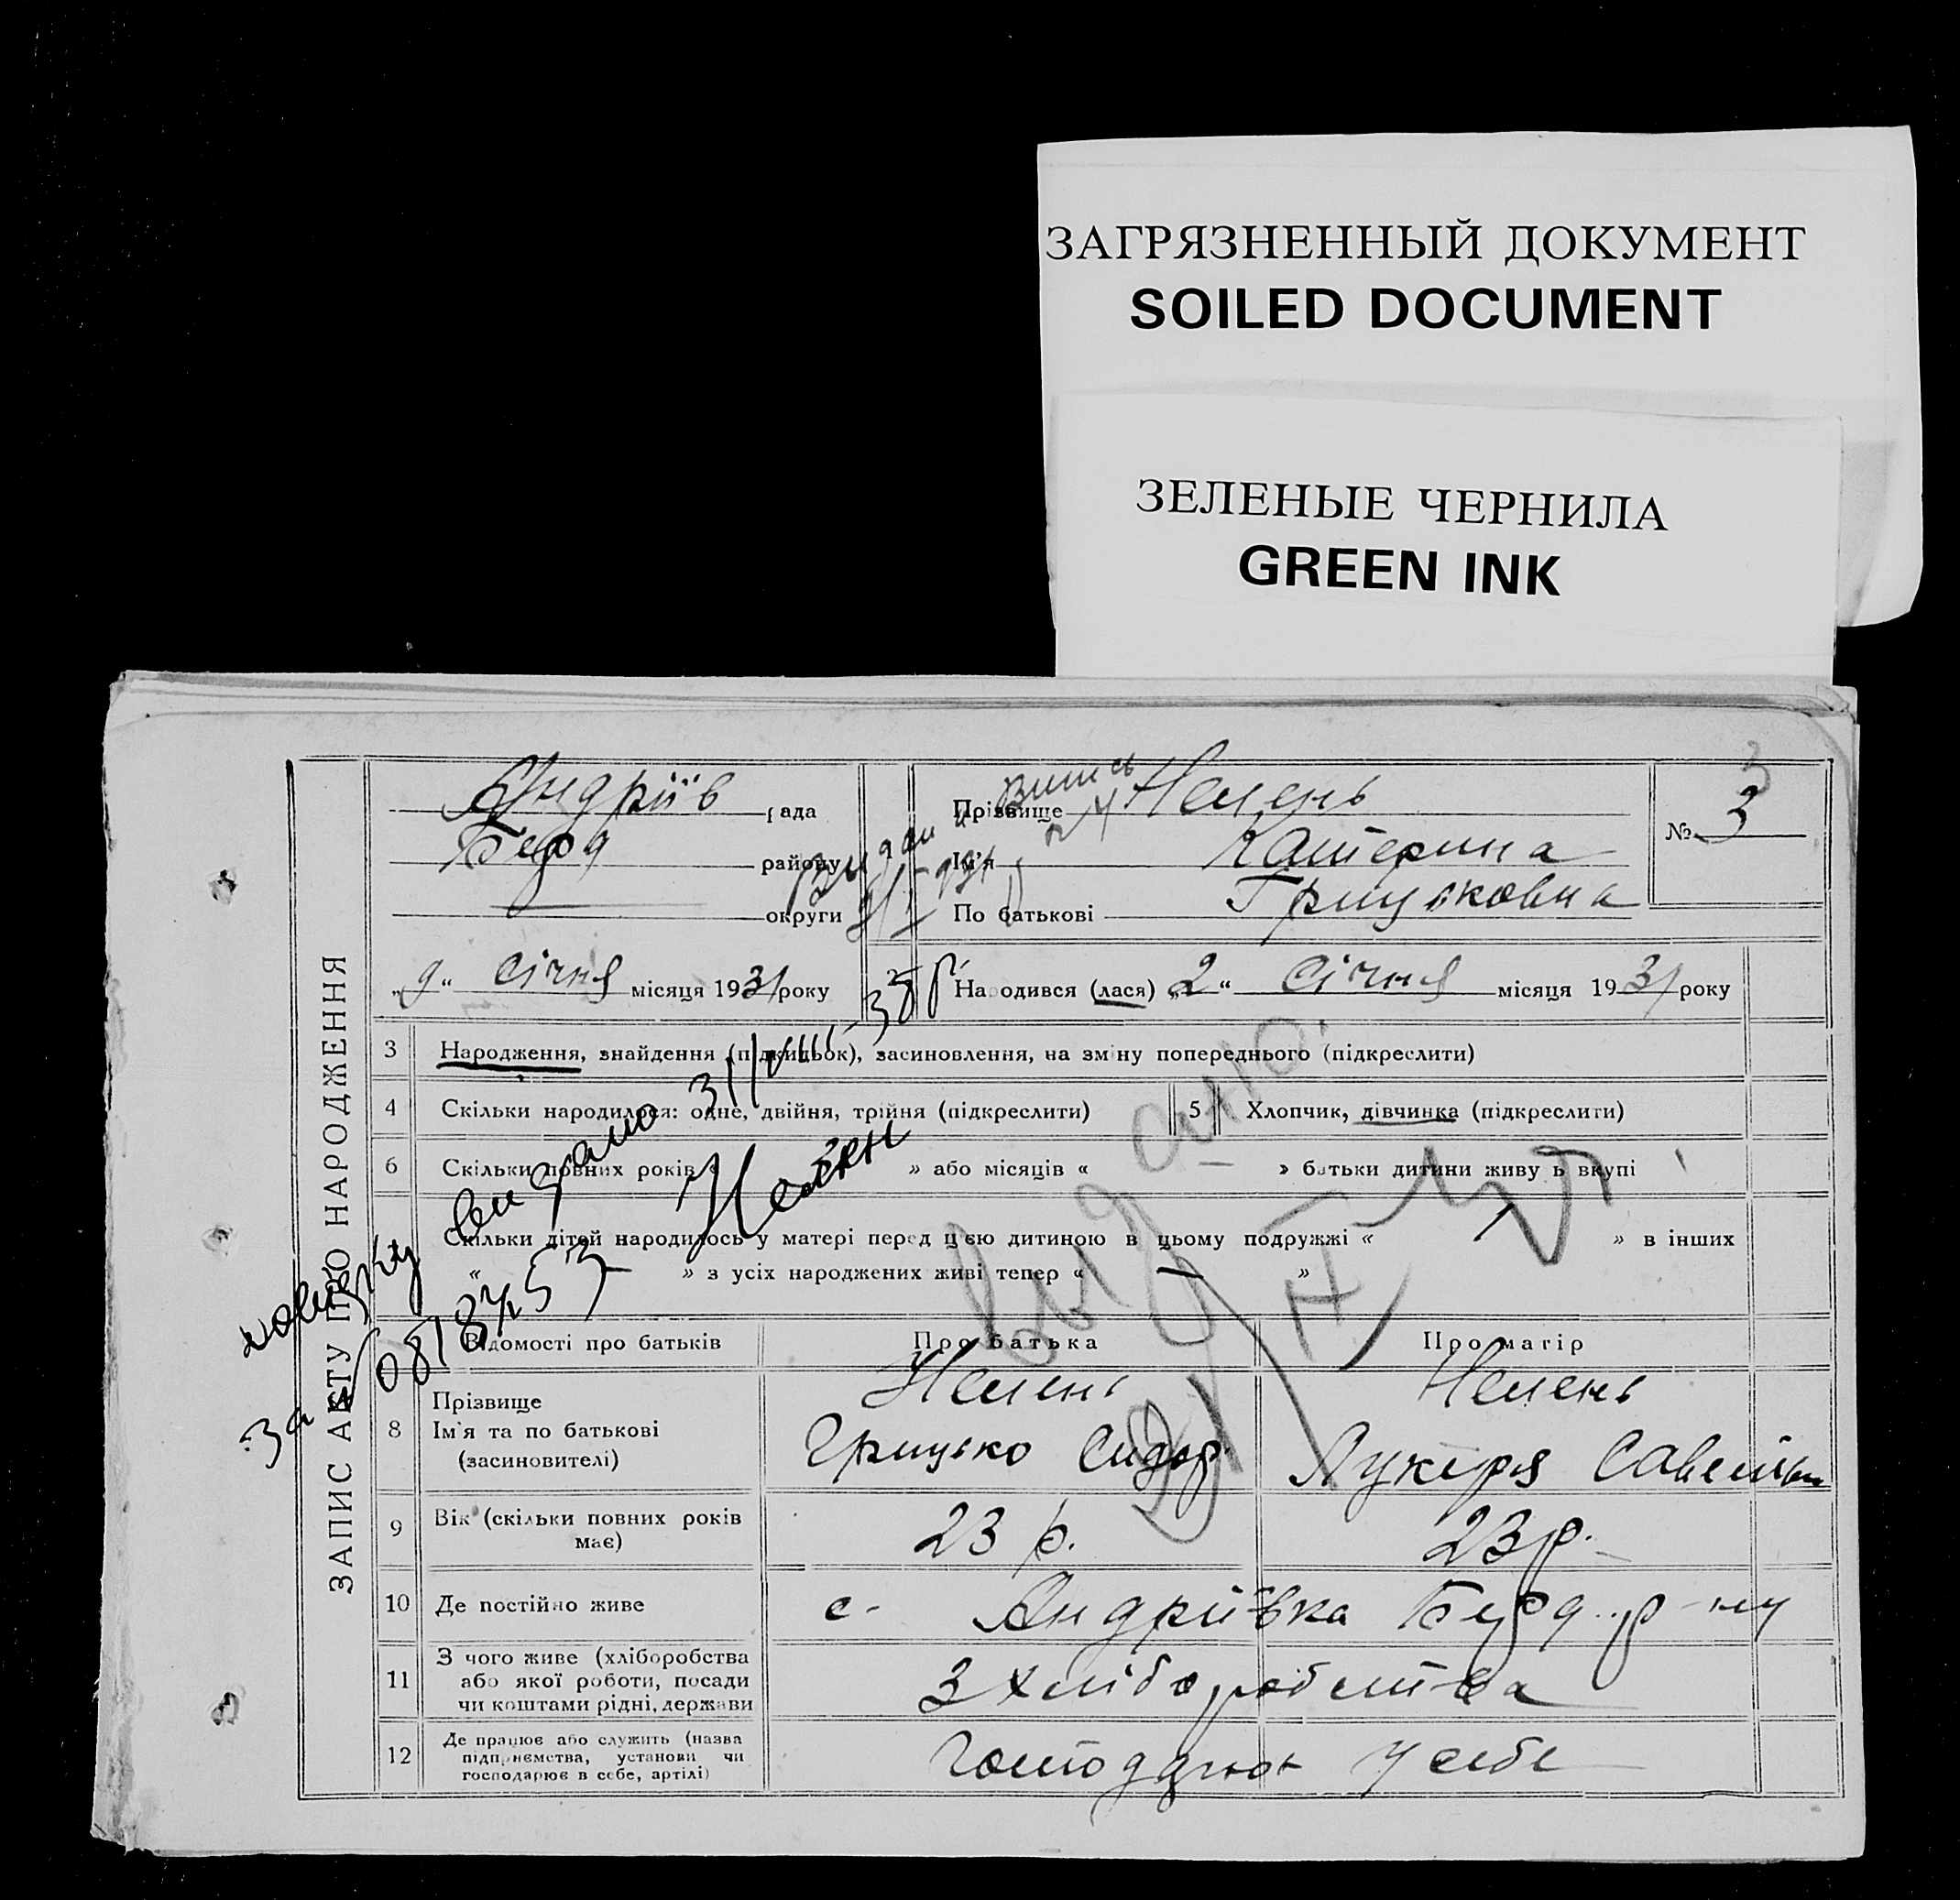 ЗАГРЯЗНЕННЫЙ ДОКУМЕНТ
SOILED DOCUMENT
ЗЕЛЕНЫЕ ЧЕРНИЛА
GREEN INK
ЗАПИС АКТУ ПРО НАРОДЖЕННЯ
Андріїв рада
Берд району
округи
Прізвище
Ім'я Катерина
По батькові Грицьковна
№ 3
3
„9“ Січня місяця 1931 року
Народився (лася) „2“ Січня місяця 1931 року
3 Народження, знайдення (підкидьок), засиновлення, на зміну попереднього (підкреслити)
4 Скільки народилося: одне, двійня, трійня (підкреслити)
5 Хлопчик, дівчинка (підкреслити)
6 Скільки повних років « » або місяців « » батьки дитини живуть вкупі
Скільки дітей народилось у матері перед цією дитиною в цьому подружжі « » в інших
« » з усіх народжених живі тепер « — »
довідку видано 31/VIII-35 р.
За № 0818453
Відомості про батьків
Про батька
Про матір
8 Прізвище
Ім'я та по батькові
(засиновителі)
Грицько Сидор.
Лукеря
9 Вік (скільки повних років має)
23 р.
23 р.
10 Де постійно живе
с. Андріївка Берд. р-ну
11 З чого живе (хліборобства
або якої роботи, посади
чи коштами рідні, держави
З хліборобства
12 Де працює або служить (назва
підприємства, установи чи
господарює в себе, артілі)
у себе